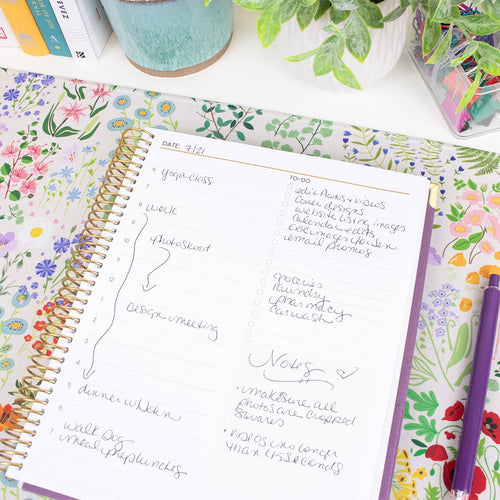 DATE: 7/21
6 yoga class
7
8 work
9
10 photoshoot
11
12
1 Design meeting
2
3
4
5 dinner w/ John
6
7 Walk Dog
8 meal prep lunches
TO-DO
edit photos + videos
cover designs
website listing images
Calendar edits
email promos
groceries
laundry
pharmacy
carwash
Notes
• make sure all
photos are cropped
squares
• videos no longer
than 45 seconds